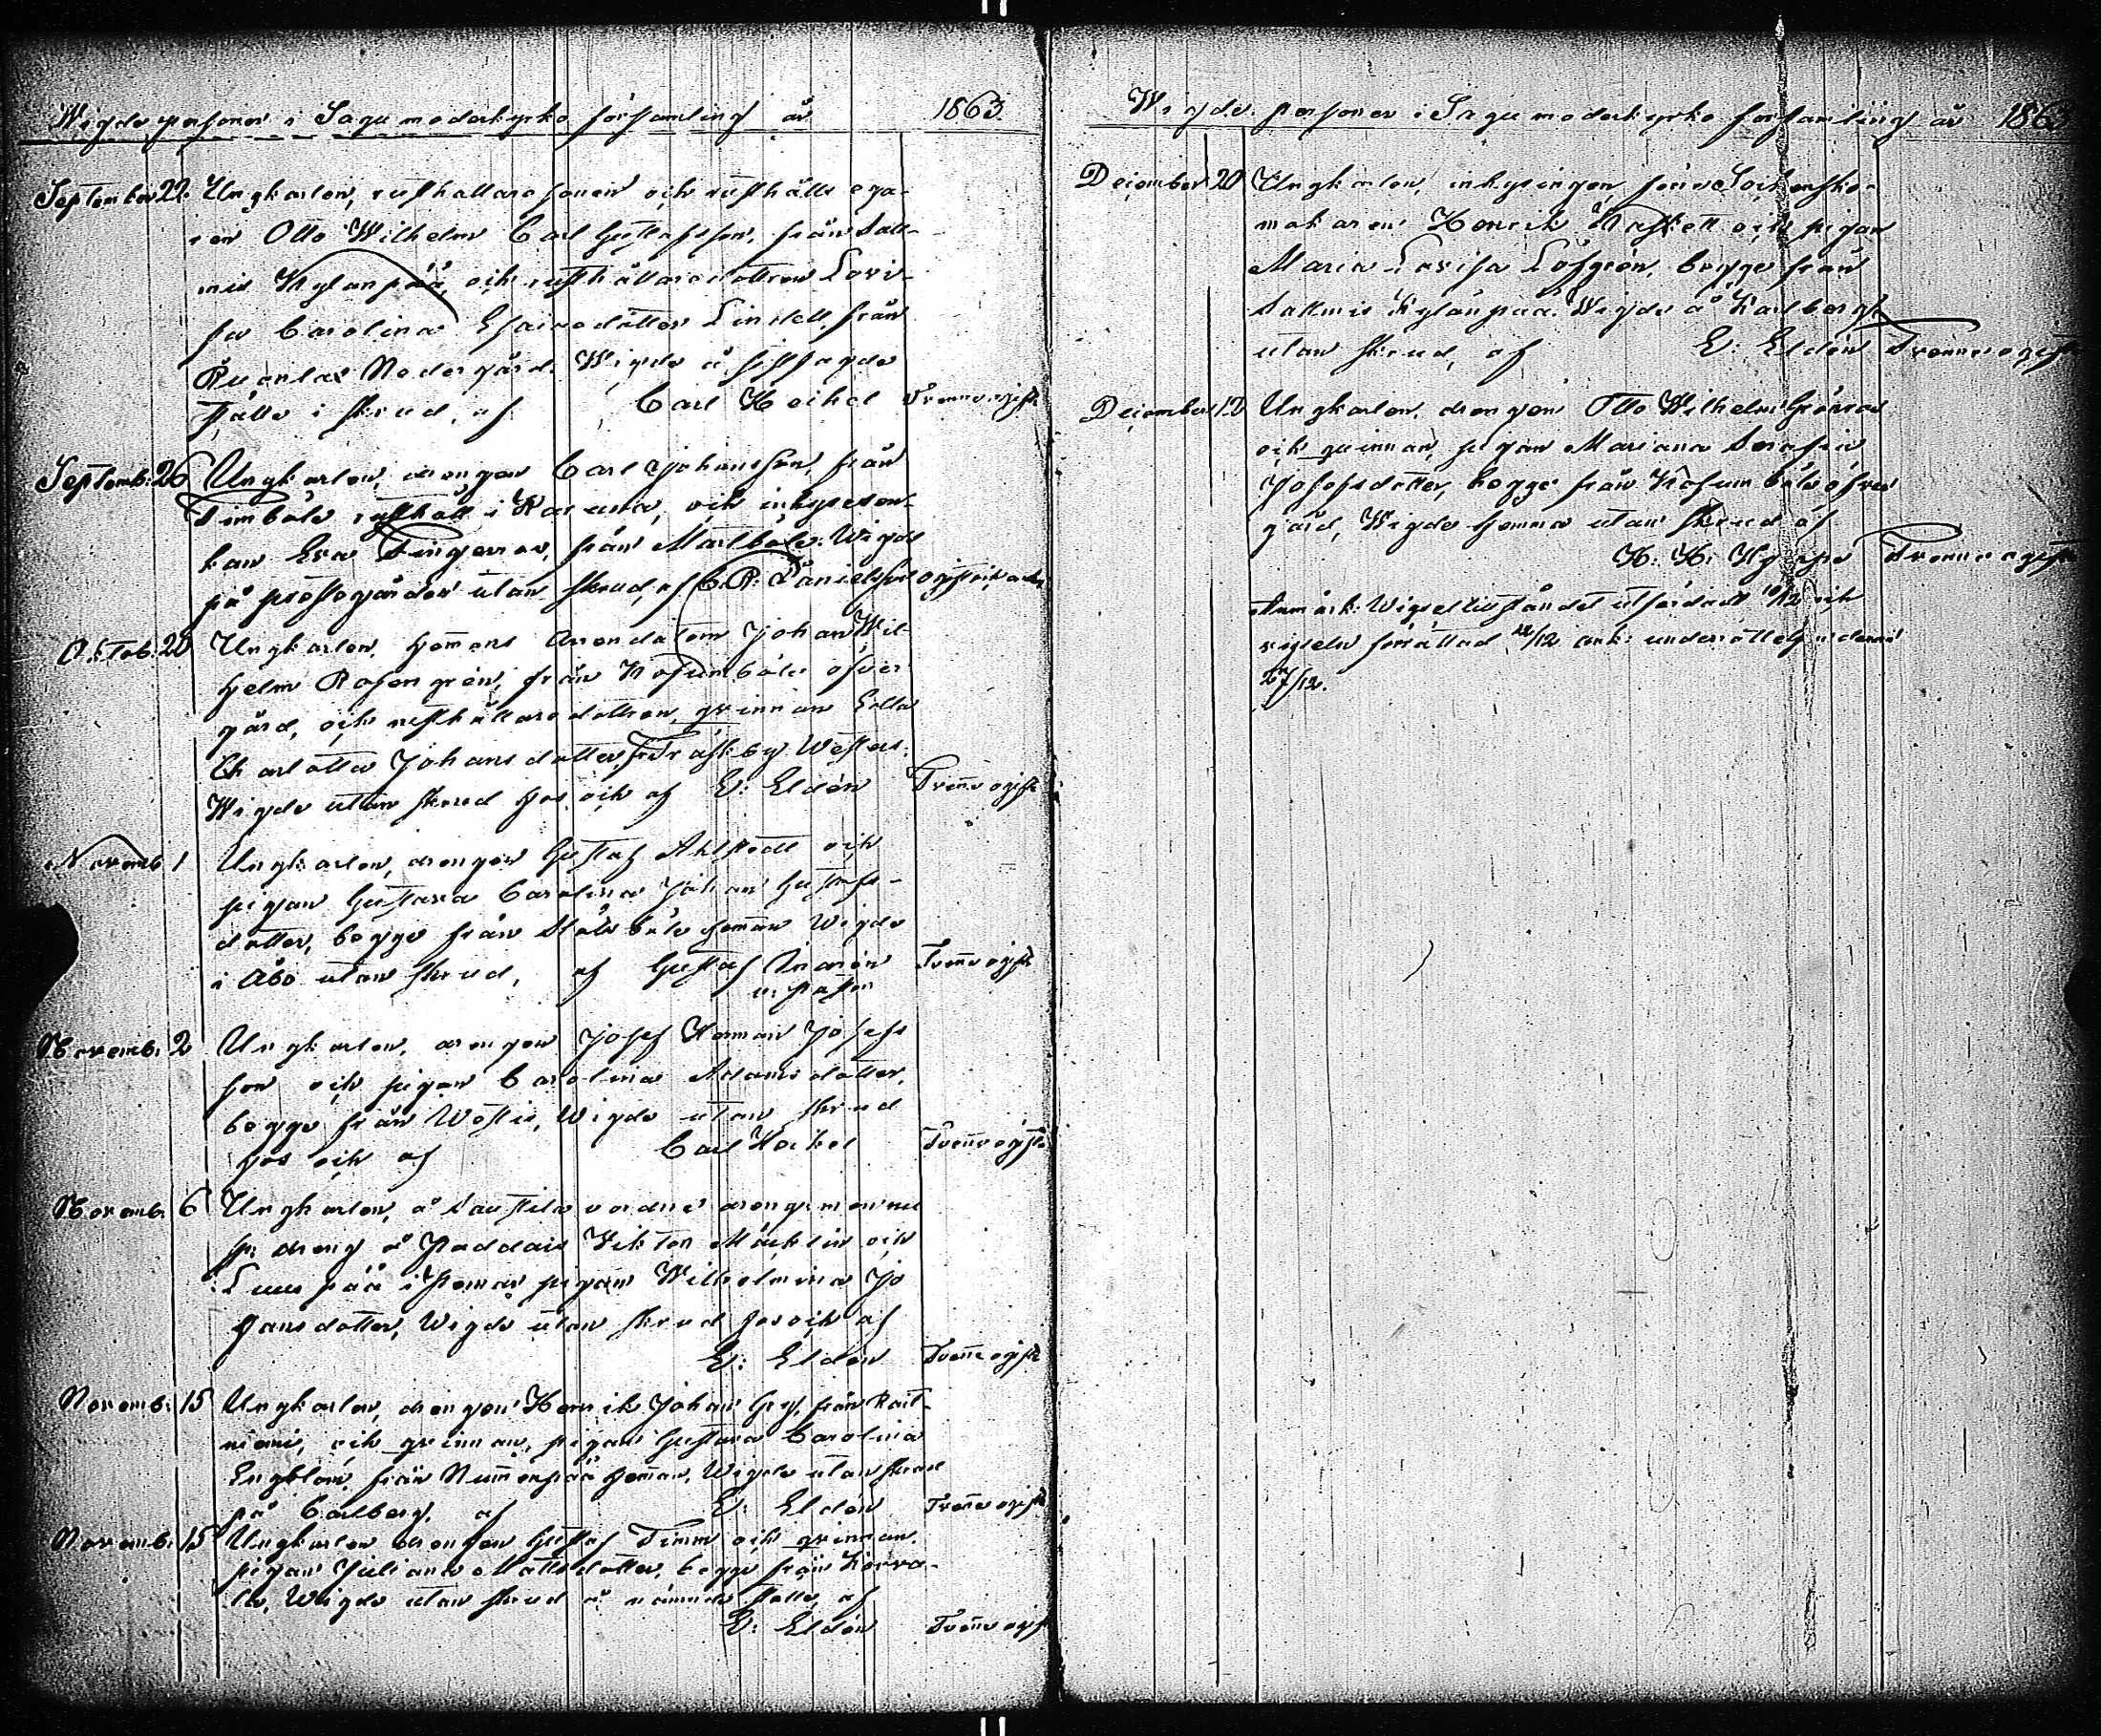 Wigde personer i Sagu moderkyrko församling år 1863.
September 22. Ungkarlen, rusthållaresonen och rusthålls ega-
ren Otto Wilhelm Carl Gustafsson, från Sall-
mis Kylänpää, och rusthållaredottren Lovi-
sa Carolina Esaiædotter Lindell, från
Ruonlax Nedergård. Wigde å sistsagde
ställe i skrud, af Carl Heikel Tvenne ogift
Septemb: 26 Ungkarlen, drengen Carl Johansson, från
Timböle rusthåll i Karuna, och inhyseen-
kan Eva Tingerroos, från Mattböle. Wigde
på prostegården utan skrud, af C. R. Danielsson
Oktob: 22 Ungkarlen, hemmans Arendatorn Johan Wil-
helm Rosengrén, från Kosumböle öfver
gård, och rusthållaredottren, qvinnan Edla
Charlotta Johansdotter, från Träskby Westers.
Wigde utan skrud hos och af E: Eldén Tvenne ogift
Novemb 1 Ungkarlen, drengen Gustaf Ahlstedt och
pigan Gustava Carolina Johan Gustafs-
dotter, begge från Stålböle hemman Wigde
i Åbo utan skrud, af Gustaf Tvenne ogift
v: pastor
Novemb: 2 Ungkarlen, drengen Josef Herman Josefs
son och pigan Carolina Adamsdotter,
begge från Wostis, Wigde utan skrud
hos och af Carl Heikel Tvenne ogifta
Novemb. 6 Ungkarlen, å Sauftila varande drengen nu
dreng å Paddais Viktor Mäcklin och
pigan Wilhelmina Jo
hansdotter, Wigde utan skrud hos och af
E: Eldén Tvenne ogift
Novemb: 15 Ungkarlen, drengen Henrik Johan Gry, från Rait-
niemi, och qvinnan, pigan Gustava Carolina
Engblom, från Nummenpää hemman, Wigde utan skrud
på Carlberg, af E: Eldén Tvenne ogift
Novemb: 15 Ungkarlen drengen Gustaf Timm och qvinnan,
pigan Juliana Mattsdotter, begge från Korva-
la, Wigde utan skrud å nämnde ställe, af
E: Eldén Tvenne ogift
Wigde personer i Sagu moderkyrko församling år 1863
December 20 Ungkarlen, inhysingen, förre Sockensko-
makaren Henrik Hassell och pigan
Maria Lovisa Löfgrén, begge från
Sallmis Kylänpää. Wigde å Karlberg
utan skrud, af E: Eldén Tvenne ogift
December 12 Ungkarlen, drengen Otto Wilhelm Grönroos
och qvinnan, pigan Mariana Serafia
Josefsdotter, begge från Kosumböle öfver
gård, Wigde hemma utan skrud af
K. H. Tvenne ogift
Anmärk: Wigseltillståndet utfärdadt 10/12 och
vigseln förrättad 12/12 ank: underrättelse derom
27/12.